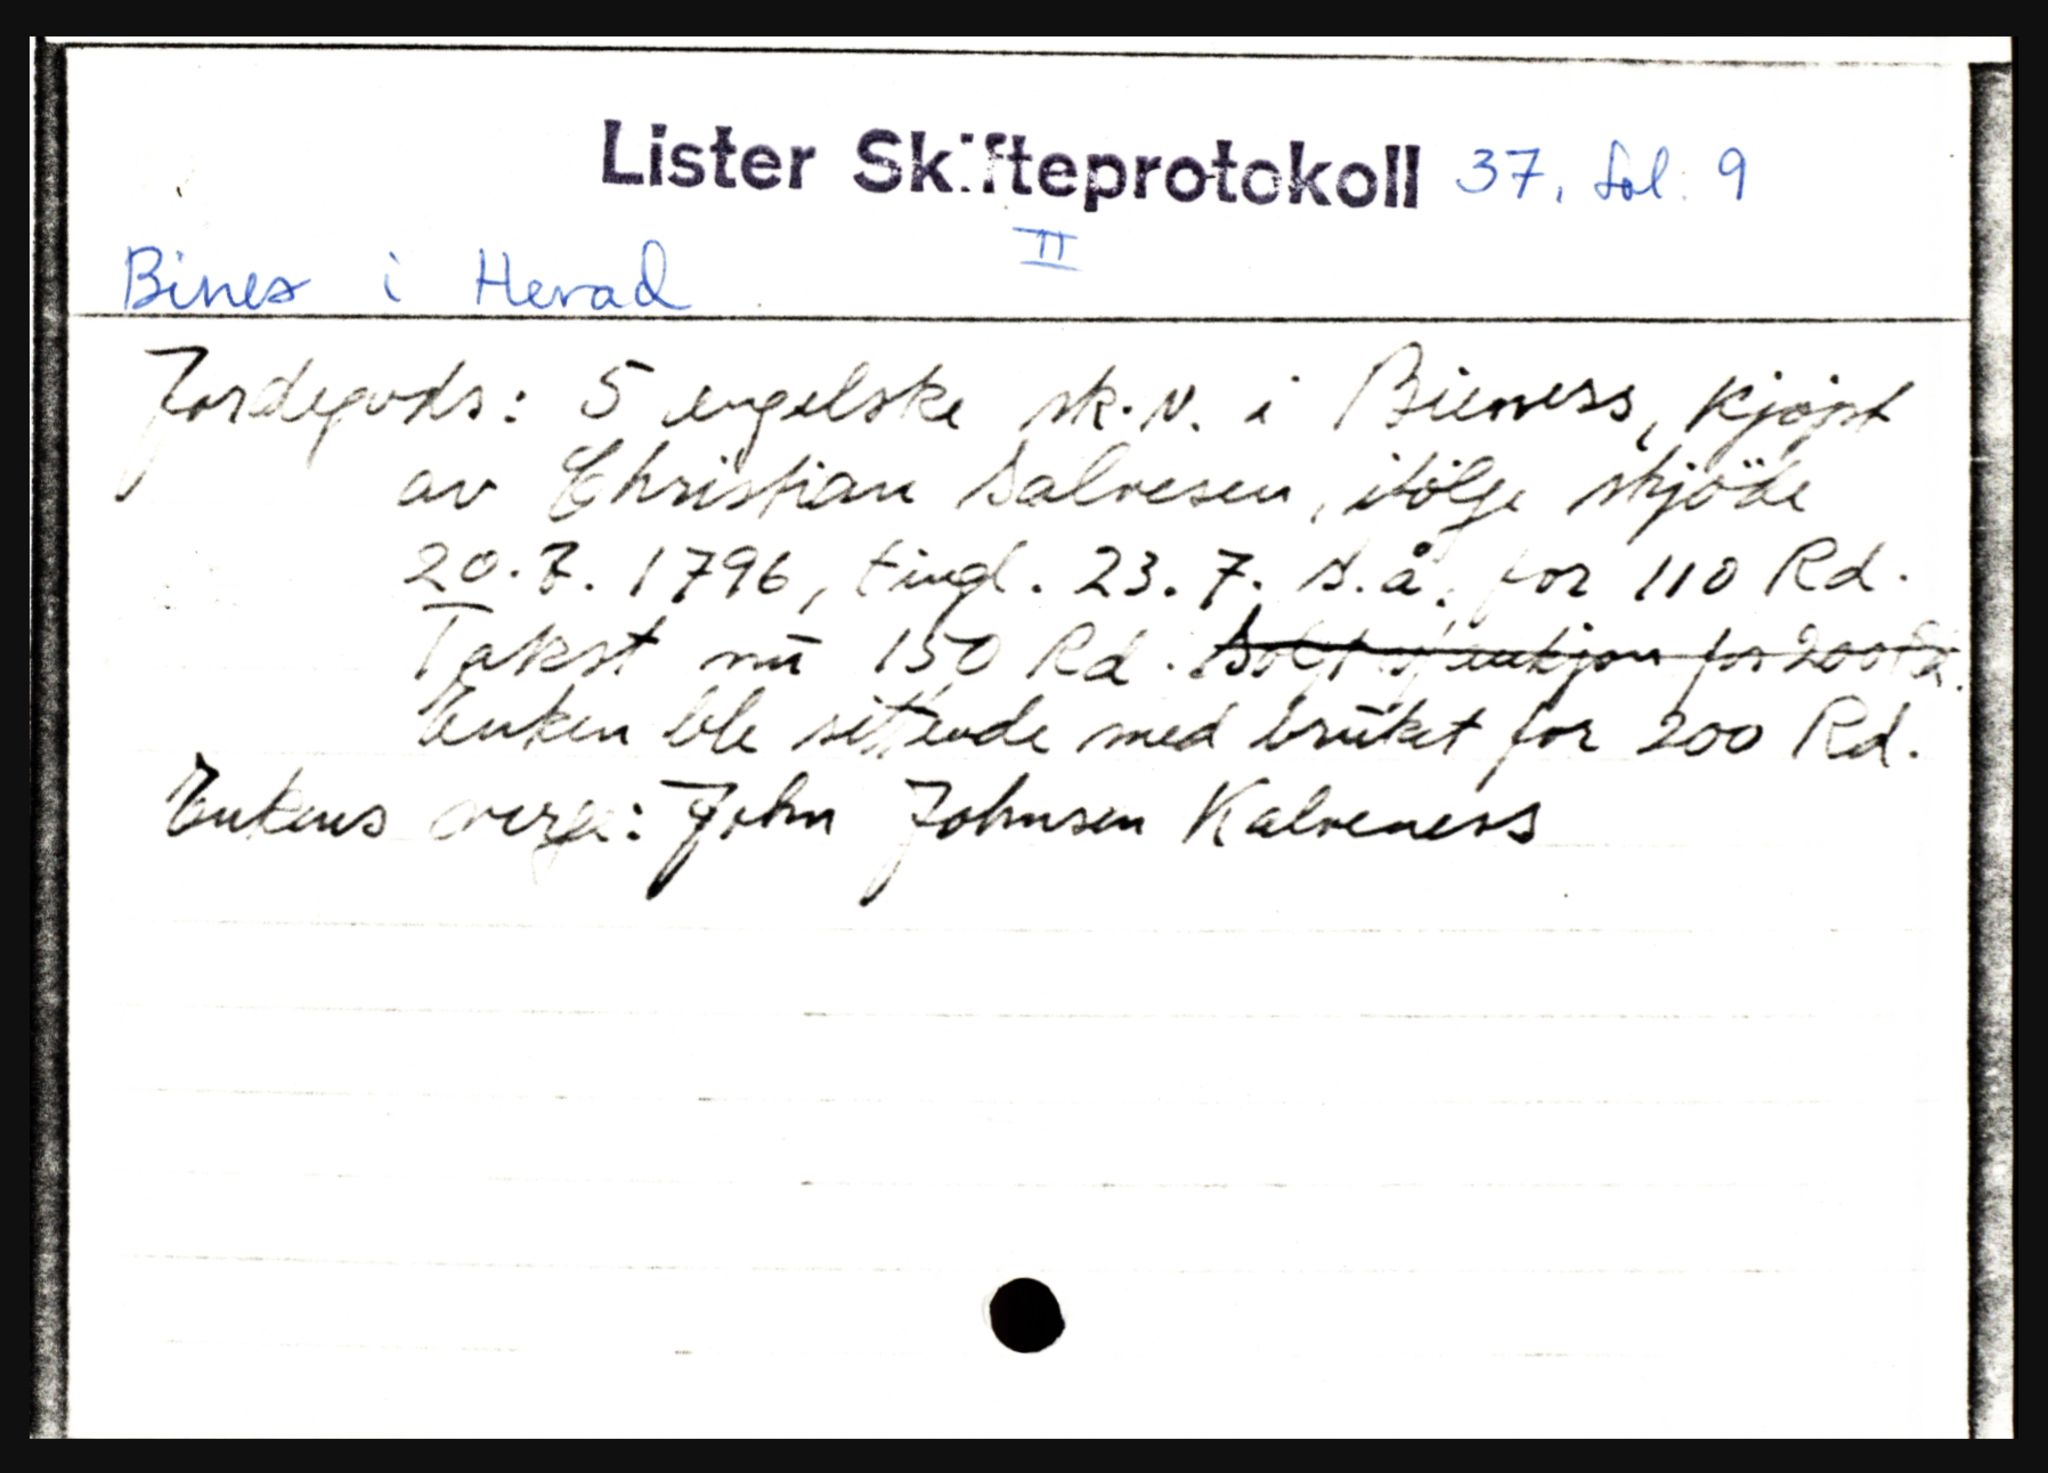 Lister Skifteprotokoll 37, fol. 9
II
Bines i Herad
Jordegods: 5 engelske sk. N. i Bieness, kjøpt
av Christian Salvesen, ifölge skjöde
20.7. 1796, tingl. 23.7. s.å. for 110 Rd.
Takst nu 150 Rd. Solgt auksjon for 200 Rd.
Enken ble sittende med bruket for 200 Rd.
Enkens verge: John Johnsen Kalveness